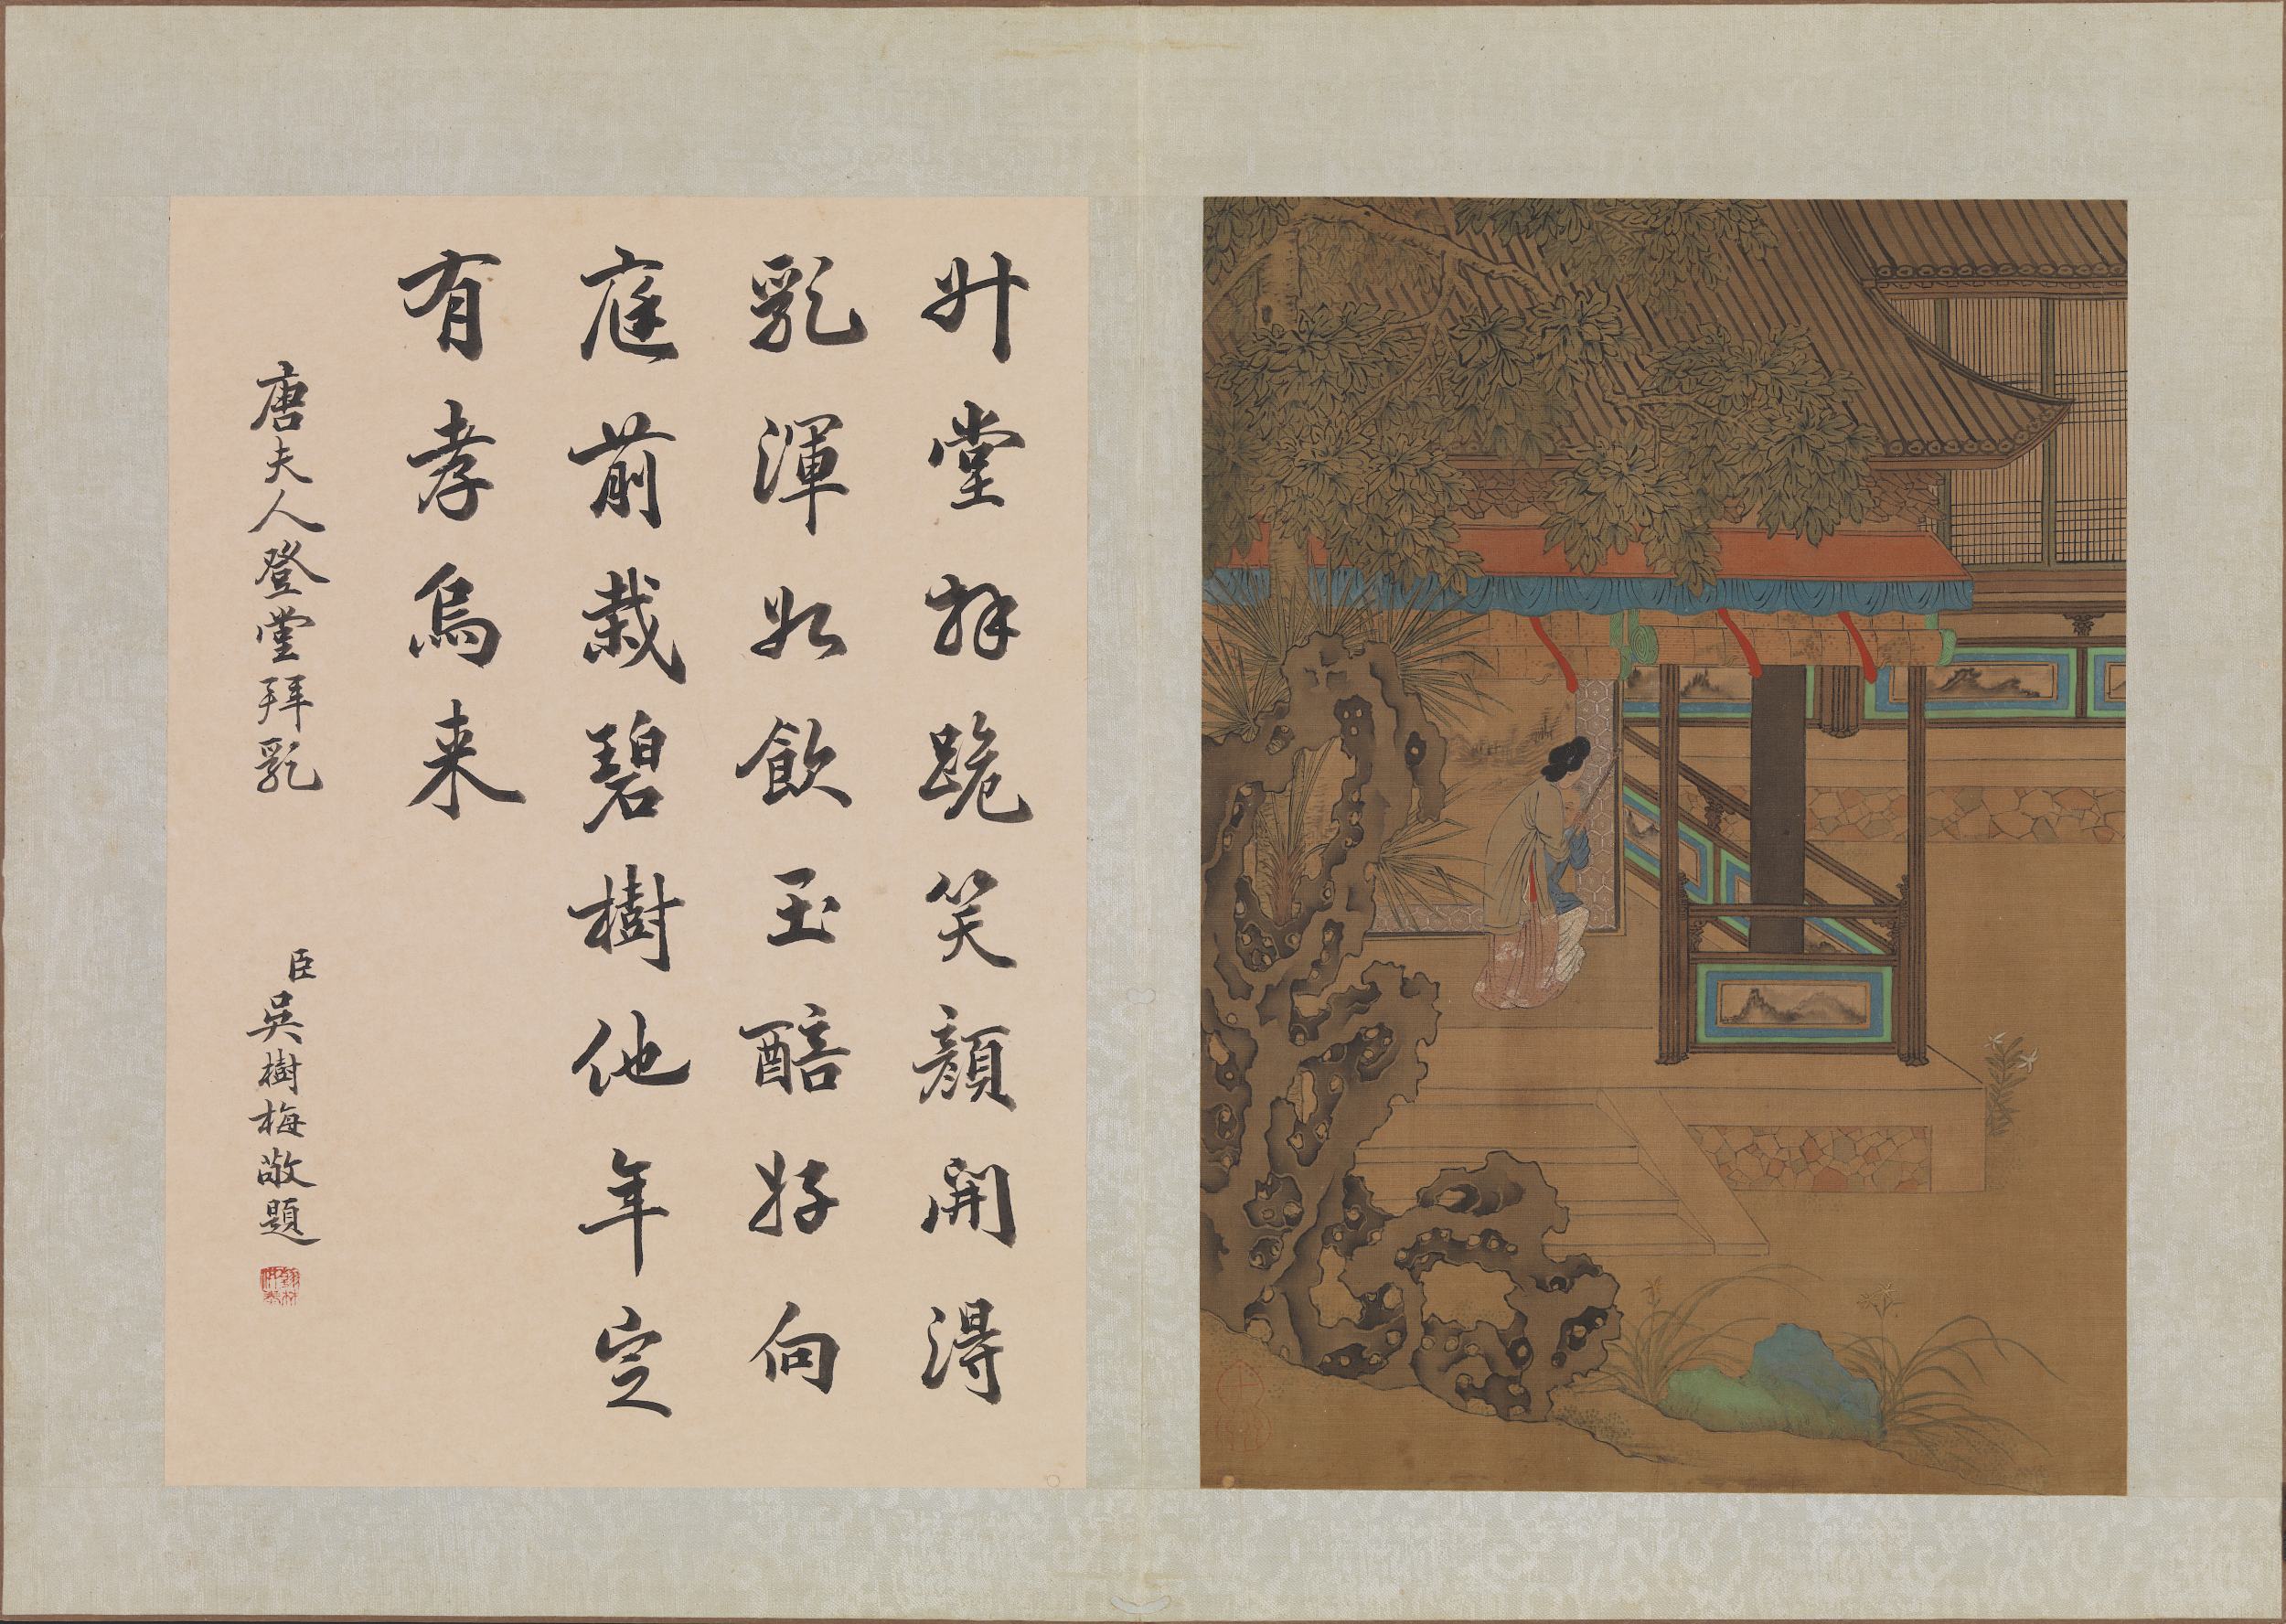 升堂拜跪笑顔開淂
乳渾如飲玉醅好向
庭前栽碧樹他年定
有孝烏来
唐夫人登堂拜乳
臣吳樹梅敬題
翰林供奉